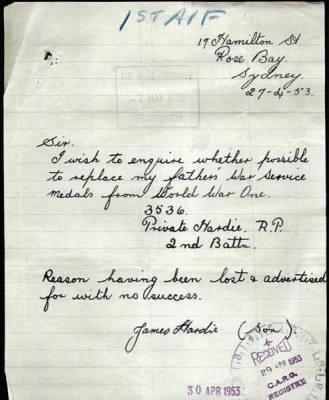 1ST AIF
17 Hamilton St
Rose Bay.
Sydney.
27-4-53.
Sir.
I wish to enquire whether possible
to replace my fathers' War Service
medals from World War One.
3536.
Private Hardie. R.P.
2nd Battn.
Reason having been lost & advertised
for with no success.
James Hardie (Son).
RECEIVED
29 APR 1953
C.A.R.O.
REGISTRY
30 APR 1953